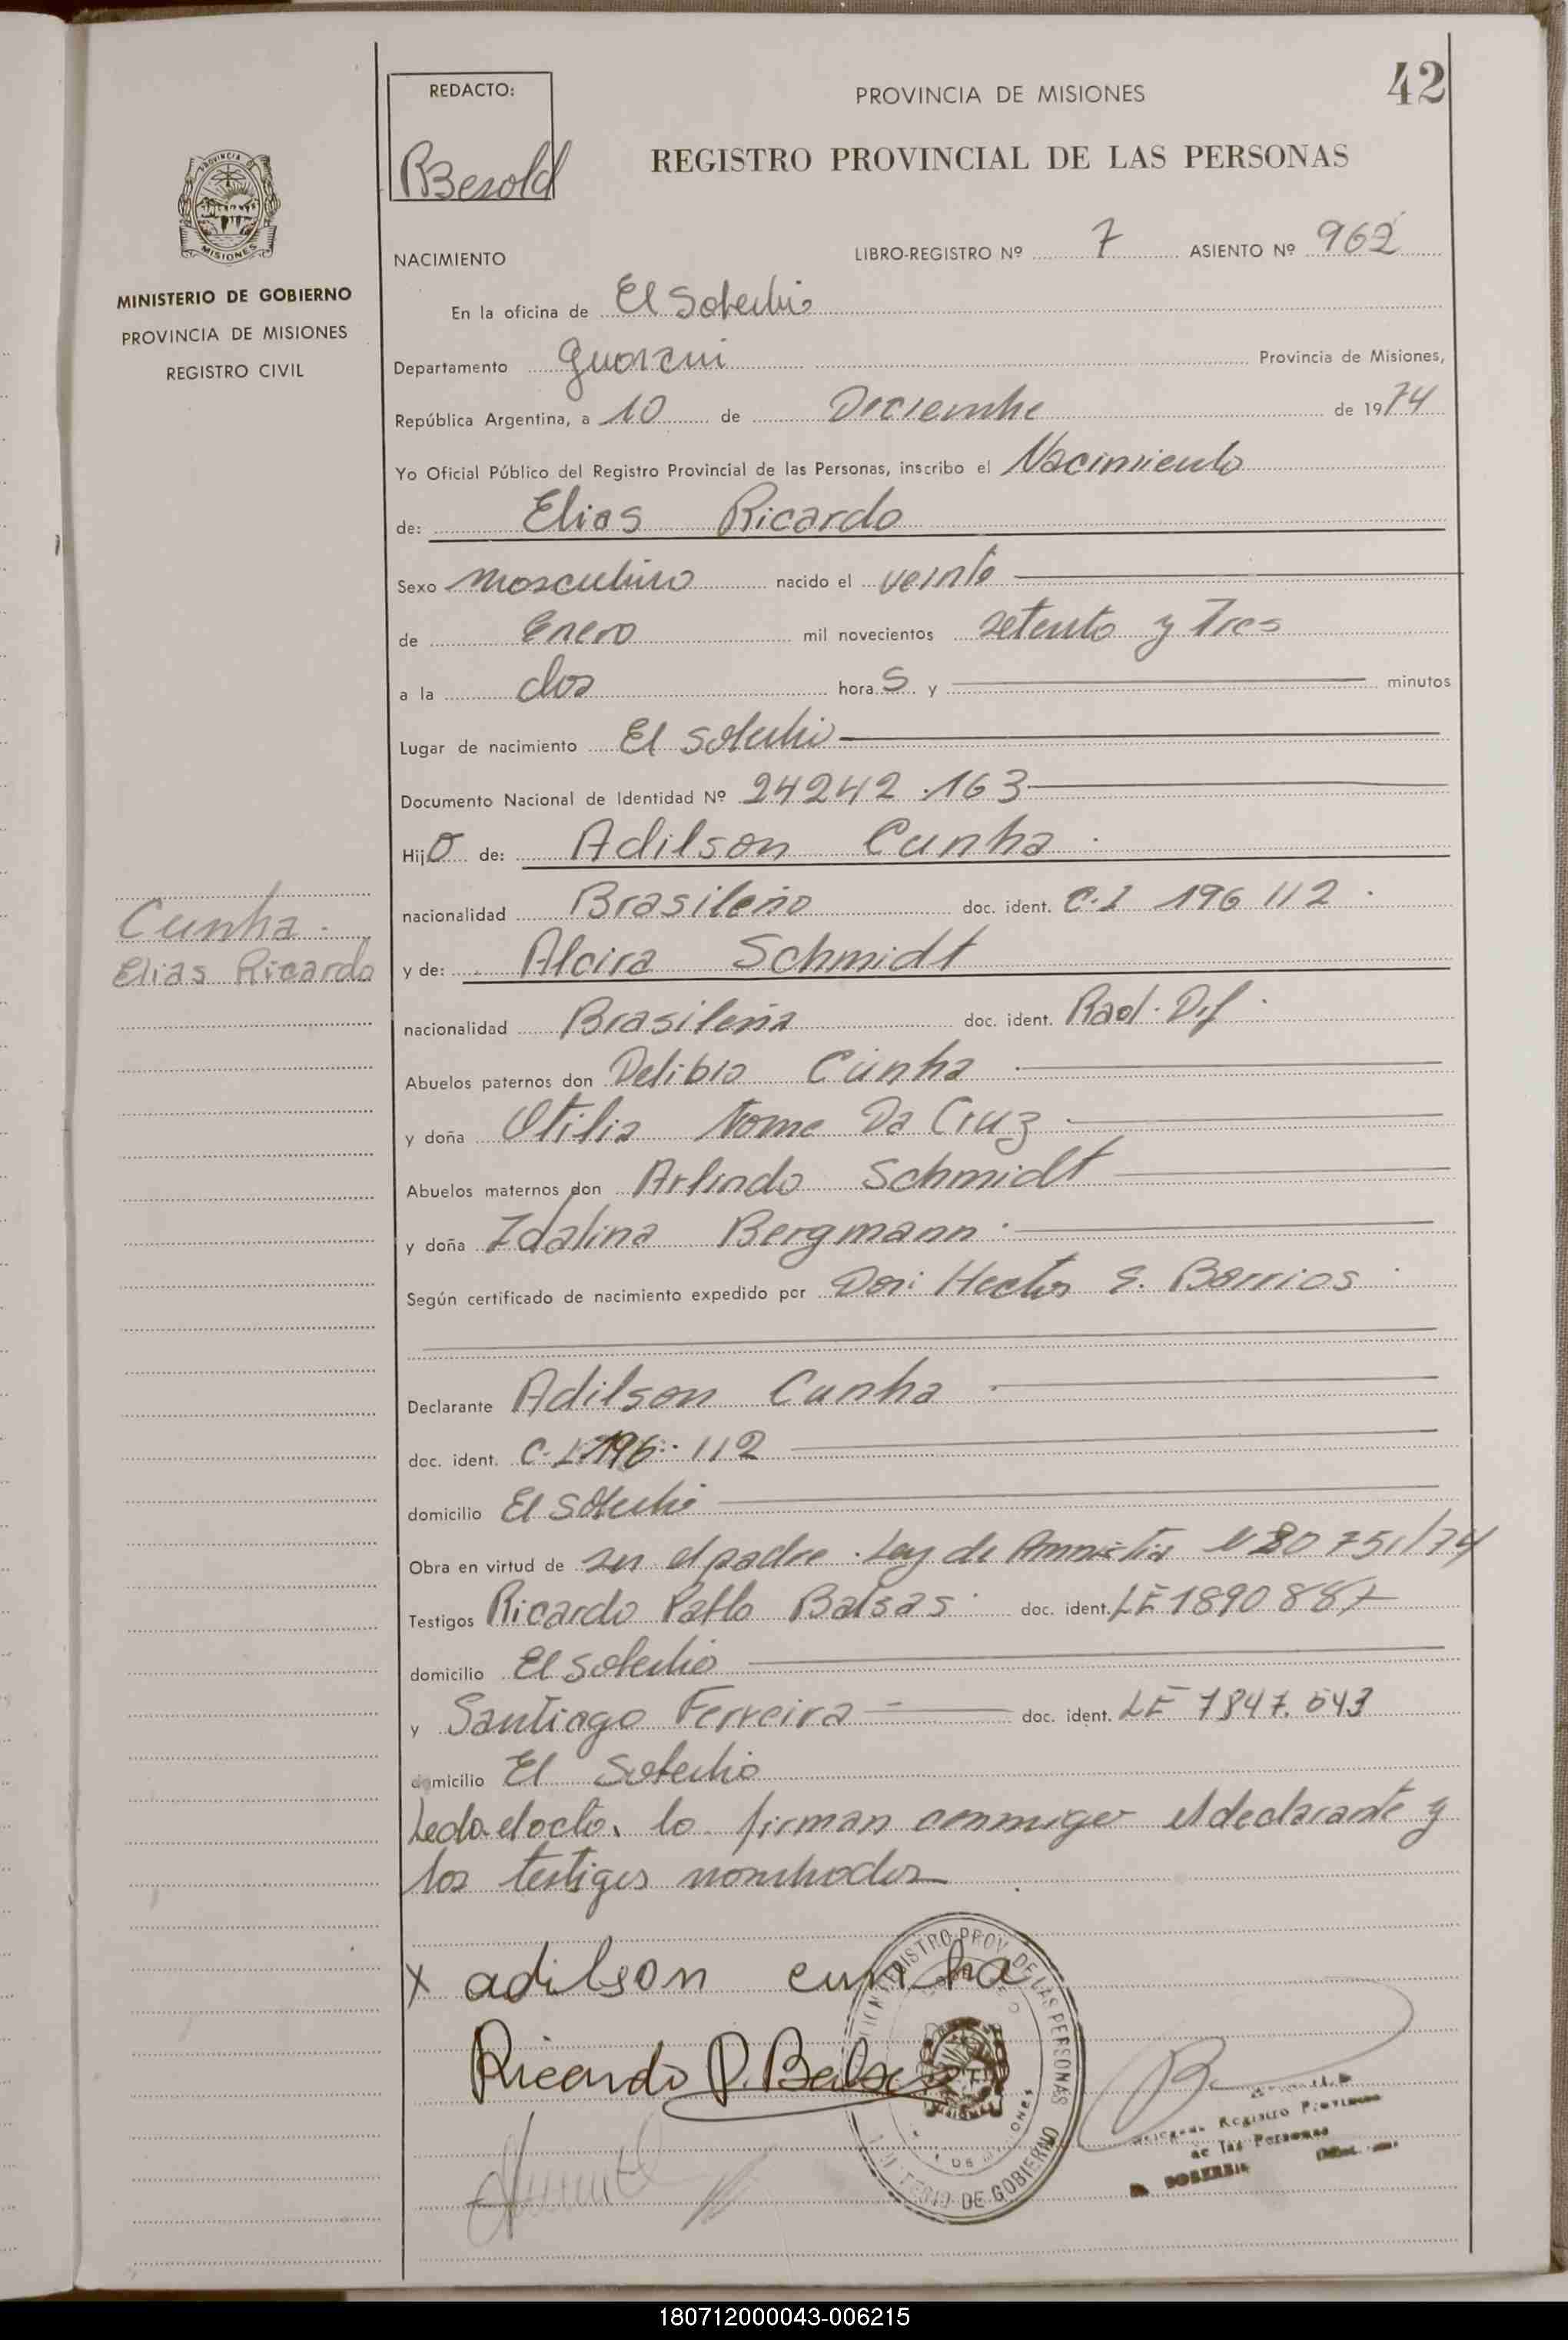 42
REDACTO:
PROVINCIA DE MISIONES
REGISTRO PROVINCIAL DE LAS PERSONAS
MINISTERIO DE GOBIERNO
PROVINCIA DE MISIONES
REGISTRO CIVIL
NACIMIENTO
LIBRO-REGISTRO Nº 7 ASIENTO Nº 962
En la oficina de El Soberbio
Departamento Guarani Provincia de Misiones,
República Argentina, a 10 de Diciembre de 1974
Yo Oficial Público del Registro Provincial de las Personas, inscribo el Nacimiento
de: Elias Ricardo
Sexo masculino nacido el veinte
de Enero mil novecientos setenta y Tres
a la dos horas y minutos
Lugar de nacimiento El Soberbio
Documento Nacional de Identidad Nº 24242.163
Hijo de: Adilson Cunha
nacionalidad Brasileño doc. ident. C.I 196 112
Cunha.
Elias Ricardo
y de: Alcira Schmidt
nacionalidad Brasileña doc. ident.
Abuelos paternos don Delibio Cunha
y doña Otilia Nome Da Cruz
Abuelos maternos don Arlindo Schmidt
y doña Idalina Bergmann
Según certificado de nacimiento expedido por Don: Hector E. Barrios
Declarante Adilson Cunha
doc. ident. C.I 196.112
domicilio El Soberbio
Obra en virtud de ser el padre. Ley de Amnistia Nº 20751/74
Testigos Ricardo Pablo Balsas doc. ident. LE 1890887
domicilio El Soberbio
y Santiago Ferreira doc. ident. LE 7847.543
domicilio El Soberbio
Leda el acta, lo firman conmigo el declarante y
los testigos nombrados
X adilson cunha
Ricardo P. Balsas
REGISTRO PROV. DE LAS PERSONAS
DE GOBIERNO
Registro Provincial
de las Personas
SOBERBIO
180712000043-006215